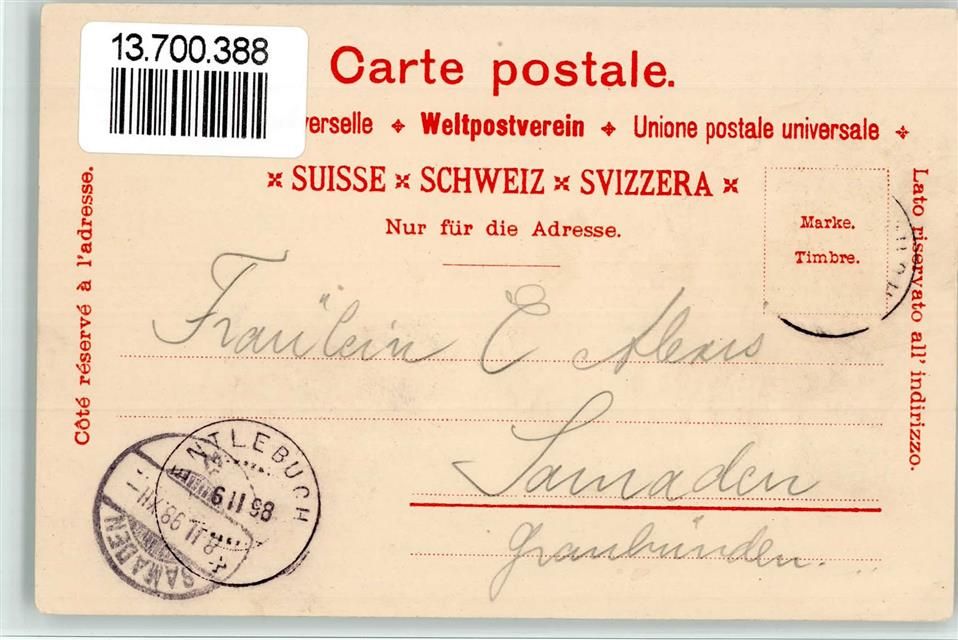 13.700.388
Carte postale.
verselle Weltpostverein Unione postale universale
SUISSE SCHWEIZ SVIZZERA
Nur für die Adresse.
Côté réservé à l'adresse.
Lato riservato all' indirizzo.
Marke.
Timbre.
Fräulein E
Samaden
Graubünden.
NTLEBUCH
SAMADEN